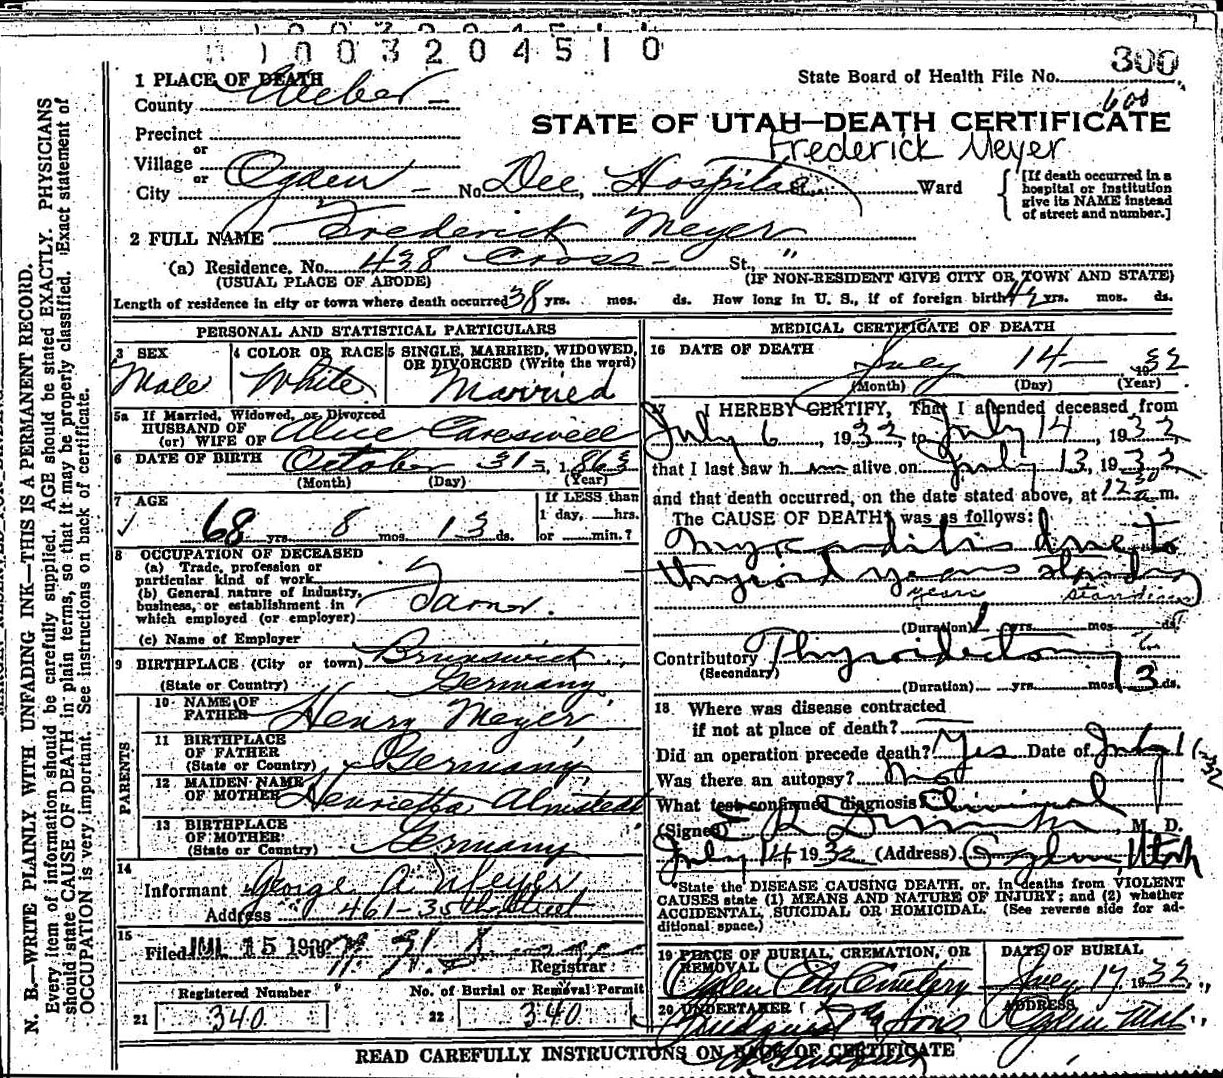 1 0 0 3 2 0 4 5 1 0
300
1 PLACE OF DEATH
State Board of Health File No.
County Weber
600
STATE OF UTAH—DEATH CERTIFICATE
Precinct
Frederick Meyer
or
Village
or
City Ogden No. Dee Hospital St., Ward
[If death occurred in a hospital or institution give its NAME instead of street and number.]
2 FULL NAME Frederick Meyer
(a) Residence, No. 438 Cross St., "
(USUAL PLACE OF ABODE) (IF NON-RESIDENT GIVE CITY OR TOWN AND STATE)
Length of residence in city or town where death occurred 38 yrs. mos. ds. How long in U. S., if of foreign birth yrs. mos. ds.
PERSONAL AND STATISTICAL PARTICULARS
3 SEX
Male
4 COLOR OR RACE
White
5 SINGLE, MARRIED, WIDOWED, OR DIVORCED (Write the word)
Married
5a If Married, Widowed, or Divorced
HUSBAND OF
(or) WIFE OF Alice Careswell
6 DATE OF BIRTH October 31 1863
(Month) (Day) (Year)
7 AGE
68 yrs. 8 mos. 13 ds.
If LESS than
1 day, hrs.
or min.?
8 OCCUPATION OF DECEASED
(a) Trade, profession or
particular kind of work
(b) General nature of industry,
business, or establishment in
which employed (or employer)
(c) Name of Employer
9 BIRTHPLACE (City or town) Brunswick
(State or Country) Germany
PARENTS
10 NAME OF
FATHER Henry Meyer
11 BIRTHPLACE
OF FATHER
(State or Country) Germany
12 MAIDEN NAME
OF MOTHER Henrietta Almstedt
13 BIRTHPLACE
OF MOTHER
(State or Country) Germany
14
Informant George A. Meyer
Address 461-35th Street
15
Filed JUL 15 19
Registrar
Registered Number
21 340
No. of Burial or Removal Permit
22 340
MEDICAL CERTIFICATE OF DEATH
16 DATE OF DEATH July 14 1932
(Month) (Day) (Year)
17 I HEREBY CERTIFY, That I attended deceased from
July 6, 1932, to July 14, 1932
that I last saw h im alive on July 13, 1932
and that death occurred, on the date stated above, at 12 30 a m.
The CAUSE OF DEATH was as follows:
Myocarditis due to
thyroid years standing
years standing
(Duration) yrs. mos. ds.
Contributory Thyroidectomy
(Secondary)
(Duration) yrs. mos. 13 ds.
18 Where was disease contracted
if not at place of death?
Did an operation precede death? Yes Date of July 1
Was there an autopsy? no
What test confirmed diagnosis? Clinical
(Signed) E R Dumke, M. D.
July 14, 1932 (Address) Ogden Utah
*State the DISEASE CAUSING DEATH, or, in deaths from VIOLENT
CAUSES state (1) MEANS AND NATURE OF INJURY; and (2) whether
ACCIDENTAL, SUICIDAL OR HOMICIDAL. (See reverse side for ad-
ditional space.)
19 PLACE OF BURIAL, CREMATION, OR REMOVAL
Ogden City Cemetery
DATE OF BURIAL
July 17 1932
20 UNDERTAKER
& Sons
ADDRESS
Ogden Utah
READ CAREFULLY INSTRUCTIONS ON BACK OF CERTIFICATE
N. B.—WRITE PLAINLY WITH UNFADING INK—THIS IS A PERMANENT RECORD.
Every item of information should be carefully supplied. AGE should be stated EXACTLY. PHYSICIANS
should state CAUSE OF DEATH in plain terms, so that it may be properly classified. Exact statement of
OCCUPATION is very important. See instructions on back of certificate.